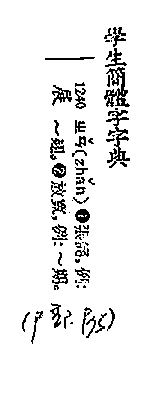 學生簡體字字典
1240 ㄓㄢˇ(zhǎn) ❶張，例：
展 ～翅。❷放寬，例：～期。
(尸部. P35)